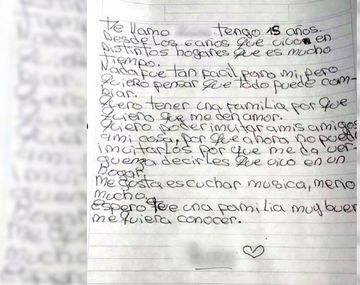 Me llamo tengo 15 años.
Desde los 6 años que vivo en
distintos hogares que es mucho
tiempo.
Nada fue tan facil para mi, pero
quiero pensar que todo puede cam-
biar.
Quero tener una familia por que
quiero que me den amor.
Quiero poder invitar a mis amigos
a mi casa, por que ahora no puedo
invitarlos por que me da ver-
guenza decirles que vivo en un
hogar.
Me gusta escuchar musica, meno
mucho.
Espero que una familia muy buen
me quiera conocer.